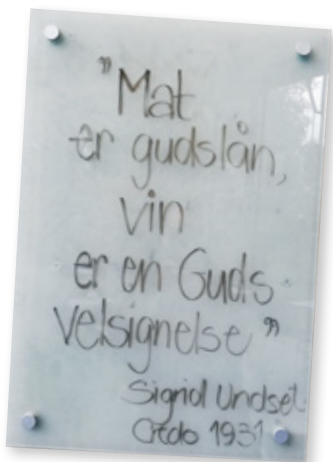 "Mat
er gudslån,
vin
er en Guds
velsignelse"
Sigrid Undset
Credo 1931